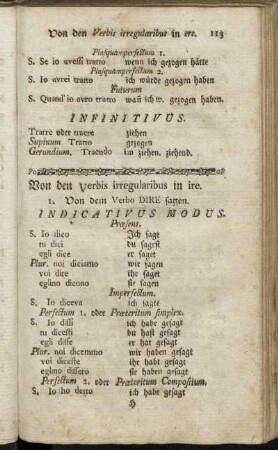 Von den Verbis irregularibus in ere. 113
Plusquamperfectum 1.
S. Se io avessi tratto wenn ich gezogen hätte
Plusquamperfectum 2.
S. Io avrei tratto ich würde gezogen haben
Futurum
S. Quand'io avro tratto wañ ich w. gezogen haben.
INFINITIVUS.
Trarre oder traere ziehen
Supinum Tratto gezogen
Gerundium, Traendo im ziehen, ziehend.
Von den Verbis irregularibus in ire.
1. Von dem Verbo DIRE sagen.
INDICATIVUS MODUS.
Præsens.
S. Io dico Ich sage
tu dici du sagst
egli dice er saget
Plur. noi diciamo wir sagen
voi dite ihr saget
eglino dicono sie sagen
Imperfectum.
S. Io diceva ich sagte
Perfectum 1. oder Præteritum simplex.
S. Io dissi ich habe gesagt
tu dicesti du hast gesagt
egli disse er hat gesagt
Plur. noi dicemmo wir haben gesagt
voi diceste ihr habt gesagt
eglino dissero sie haben gesagt
Perfectum 2. oder Præteritum Compositum.
S. Io ho detto ich habe gesagt
H